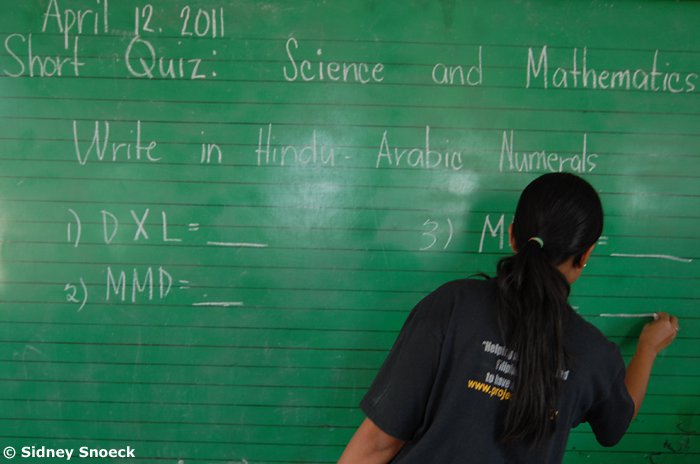 April 12. 2011
Short Quiz: Science and Mathematics
Write in Hindu-Arabic Numerals
1) DXL = ___
2) MMD = ___
3) M = ___
"Helping
to have
www.proj
© Sidney Snoeck